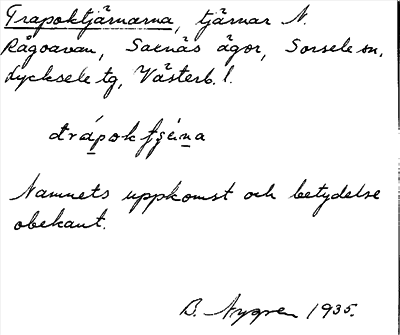 Trapoktjärnarna, tjärnar N.
Rågoavan, Saxnäs ägor, Sorsele sn,
Lycksele tg, Västerb. l.
Namnets uppkomst och betydelse
obekant.
B. Nygren 1935.